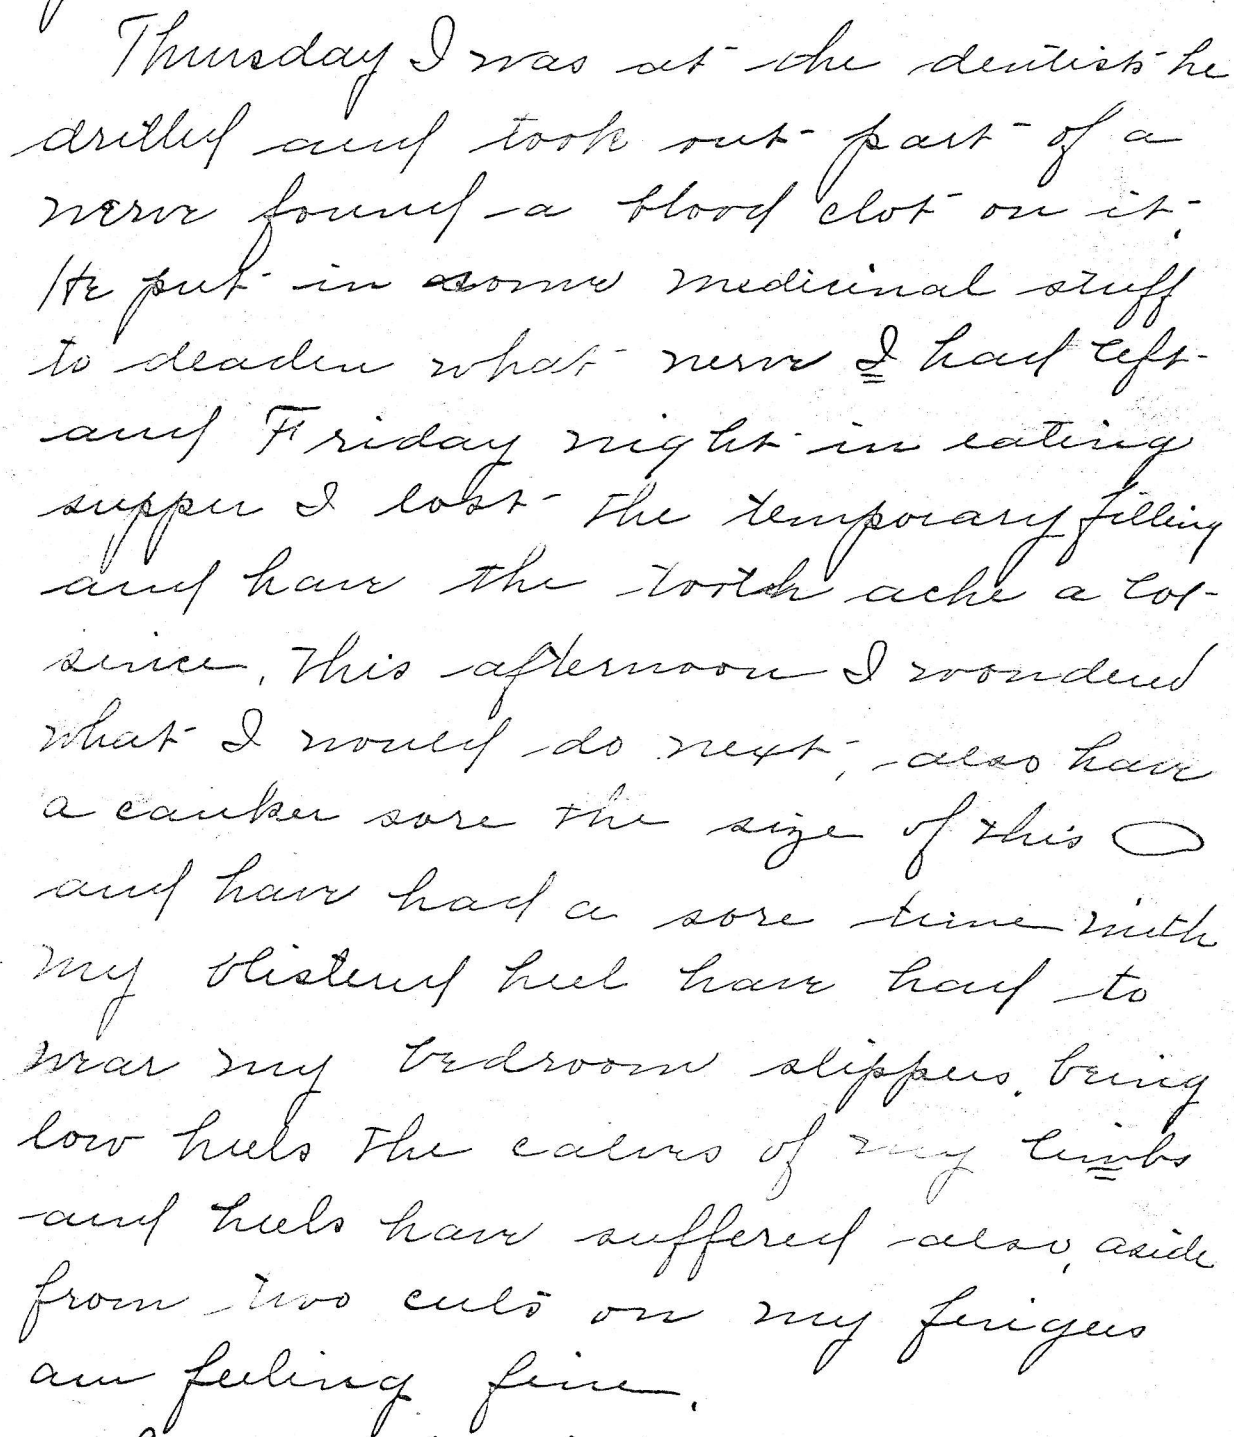 Thursday I was at the dentists he
drilled and took out part of a
nerve found a blood clot on it.
He put in some medicinal stuff
to deaden what nerve I had left
and Friday night in eating
supper I lost the temporary filling
and have the tooth ache a lot
since. This afternoon I wondered
what I would do next, also have
a canker sore the size of this
and have had a sore time with
my blistered heel have had to
wear my bedroom slippers. being
low heels the calves of my limbs
and heels have suffered also, aside
from two cuts on my fingers
am feeling fine.